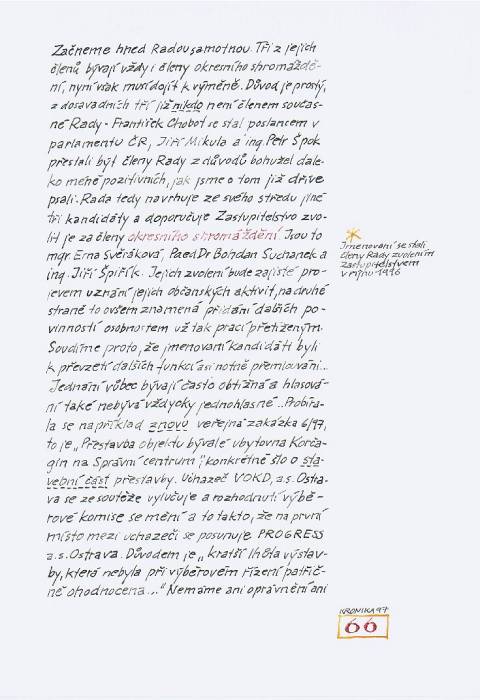 Začneme hned Radou samotnou. Tři z jejích
členů bývají vždy i členy okresního shromáždě-
ní, nyní však musí dojít k výměně. Důvod je prostý,
z dosavadních tří již nikdo není členem součas-
né Rady - František Chobot se stal poslancem v
parlamentu ČR, Jiří Mikula a ing. Petr Špok
přestali být členy Rady z důvodů bohužel dale-
ko méně pozitivních, jak jsme o tom již dříve
psali. Rada tedy navrhuje ze svého středu jiné
tři kandidáty a doporučuje Zastupitelstvo zvo-
lit je za členy okresního shromáždění. Jsou to
mgr. Erna Svěráková, PaedDr Bohdan Suchanek a
ing. Jiří Špiřík. Jejich zvolení bude zajisté pro-
jevem uznání jejich občanských aktivit, na druhé
straně to ovšem znamená přidání dalších po-
vinností osobnostem už tak prací přetíženým.
Soudíme proto, že jmenovaní kandidáti byli
k převzetí dalších funkcí asi notně přemlouváni...
Jednání vůbec bývají často obtížná a hlasová-
ní také nebývá vždycky jednohlasné... Probíra-
la se například znovu veřejná zakázka 6/97,
to je „Přestavba objektu bývalé ubytovna Korča-
gin na Správní centrum“, konkrétně šlo o sta-
vební část přestavby. Uchazeč VOKD, a.s. Ostra-
va se ze soutěže vylučuje a rozhodnutí výbě-
rové komise se mění a to takto, že na první
místo mezi uchazeči se posunuje PROGRESS
a.s. Ostrava. Důvodem je „kratší lhůta výstav-
by, která nebyla při výběrovém řízení patřič-
ně ohodnocena...“ Nemáme ani oprávnění ani
*
Jmenovaní se stali
členy Rady zvolením
zastupitelstvem
v říjnu 1996
KRONIKA 97
66